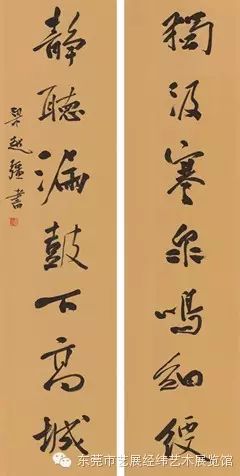 獨汲寒泉鳴細綆
靜聽漏鼓下高城
梁超疆書
东莞市艺展经纬艺术展览馆